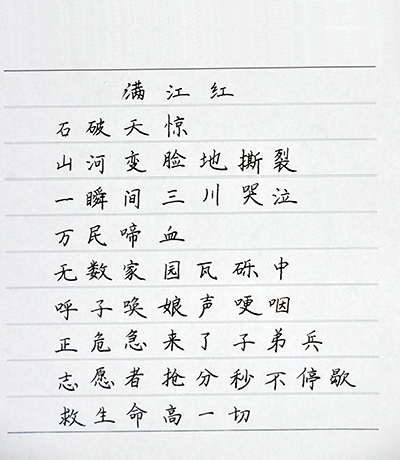 满江红
石破天惊
山河变脸地撕裂
一瞬间三川哭泣
万民啼血
无数家园瓦砾中
呼子唤娘声哽咽
正危急来了子弟兵
志愿者抢分秒不停歇
救生命高一切